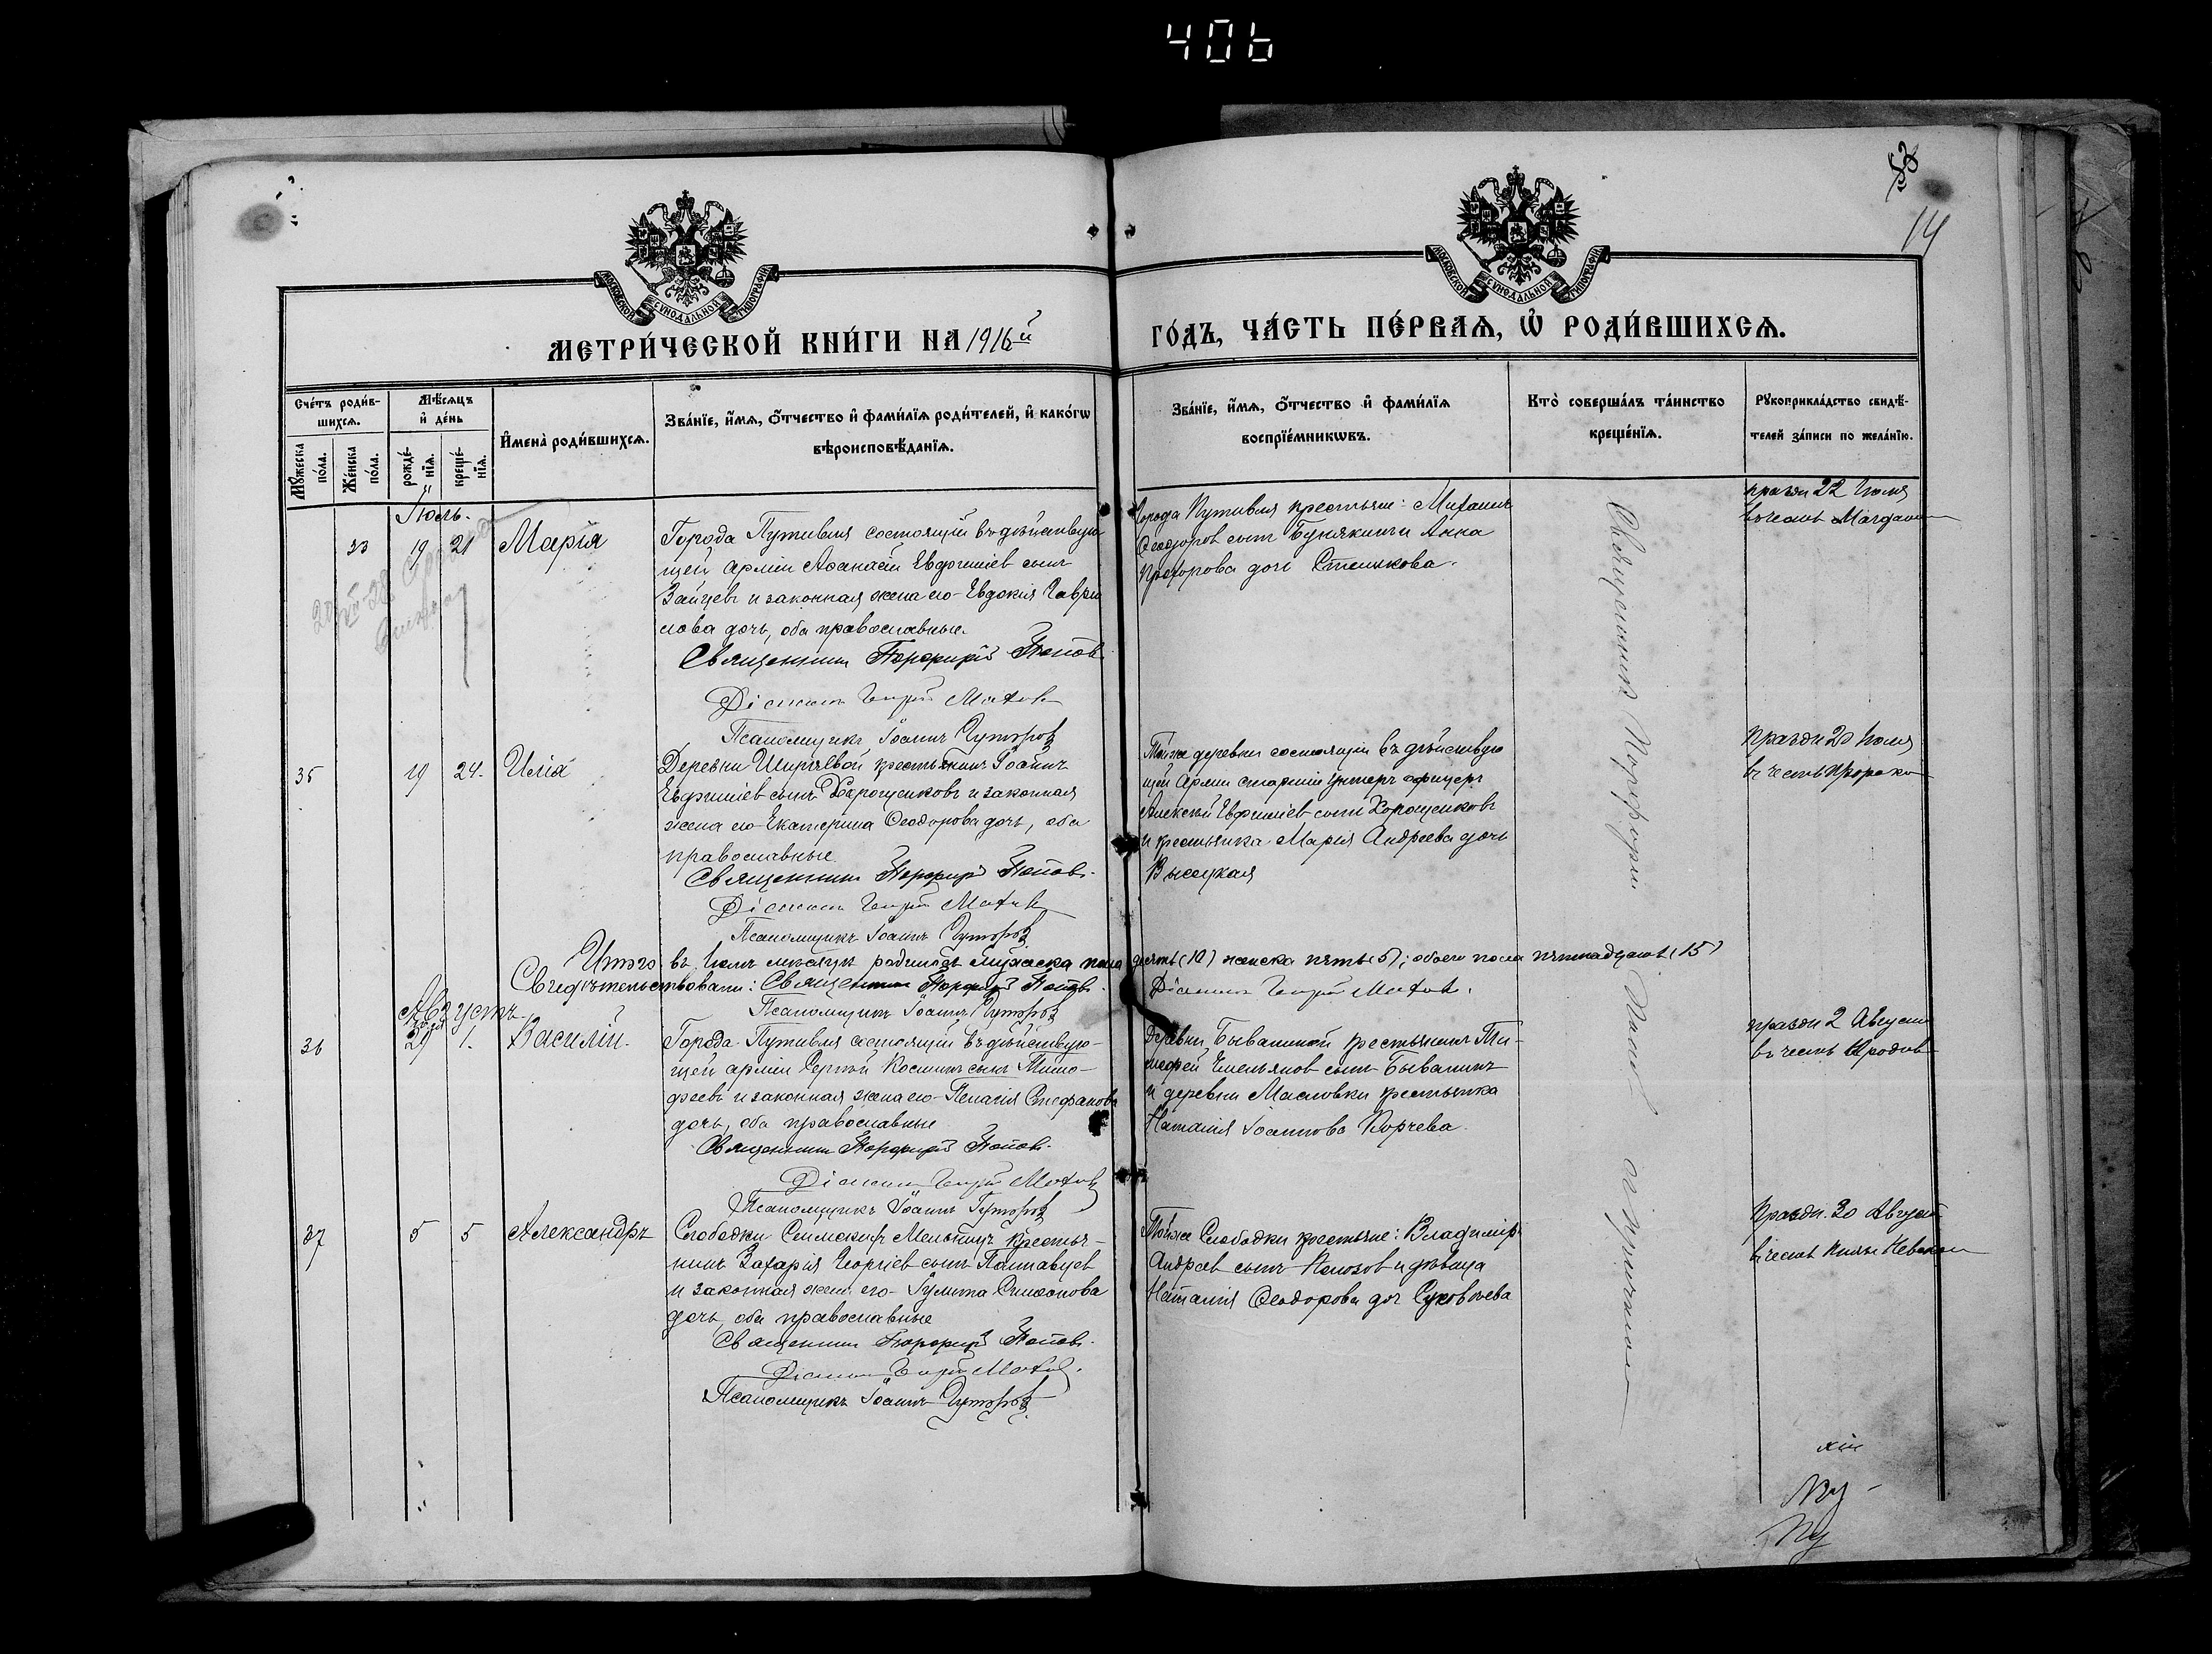 406
53
14
МОСКОВСКОЙ СѴНОДАЛЬНОЙ ТИПОГРАФІИ
МОСКОВСКОЙ СѴНОДАЛЬНОЙ ТИПОГРАФІИ
МЕТРИ́ЧЕСКОЙ КНИ́ГИ НА 1916й
ГО́ДЪ, ЧА́СТЬ ПЕ́РВАѦ, Ѽ РОДИ́ВШИХСѦ.
Сче́тъ роди́в-
шихсѧ.
Мꙋ́жеска по́ла.
Же́нска по́ла.
Мѣ́сѧцъ
и҆ де́нь
рожде́-
нїѧ.
креще́-
нїѧ.
И҆мена̀ роди́вшихсѧ.
Зва́нїе, и҆́мѧ, ѻ҆́тчество и҆ фами́лїѧ роди́телей, и҆ како́гѡ
вѣроисповѣ́данїѧ.
Зва́нїе, и҆́мѧ, ѻ҆́тчество и҆ фами́лїѧ
воспрїе́мникѡвъ.
Кто̀ соверша́лъ та́инство
креще́нїѧ.
Рꙋкоприкла́дство свидѣ́-
телей за́писи по жела́нїю.
Іюль.
23 19 21 Марія
Города Путивля состоящій въ дѣйствую
щей арміи Аѳанасій Евфиміев сынъ
Зайцевъ и законная жена его Евдокія Гаврі
лова дочь, оба православные.
Священникъ Порфирій Поповъ
Діаконъ Георгій Матов
Псаломщикъ Іоаннъ Чуторов
Города Путивля крестьяне: Михаилъ
Ѳеодоров сынъ Бунякинъ и Анна
Прохорова дочь
праздн 22 Іюля
въ честь Магдал
35 19 24. Илія
Деревни Ширяевой крестьянинъ Іоаннъ
Евфиміев сынъ Хорошенковъ и законная
жена его Екатерина Ѳеодорова дочь, оба
православные
Священникъ Порфирій Поповъ.
Діаконъ Георгій Матов
Псаломщикъ Іоаннъ Чуторов
Той же деревни состоящій въ дѣйствую
щей Арміи старшій унтеръ офицеръ
Алексѣй Евфиміев сынъ Хорошенковъ
и крестьянка Марія Андреева дочь
Высоцкая
праздн 20 Іюля
въ честь Пророка
Итого въ Іюлѣ мѣсяцѣ родилось мужеска пола десять (10) женска пять (5); обоего пола пятнадцать (15)
Свидѣтельствовали: Священникъ Порфирій Поповъ. Діаконъ Георгій Матов.
Псаломщикъ Іоаннъ Чуторов
Августъ.
36 29 1. Василій.
Города Путивля состоящій въ дѣйствую-
щей арміи Сергѣй Космин сынъ Тимо-
феевъ и законная жена его Пелагія Стефанова
дочь, оба православные
Священникъ Порфирій Поповъ.
Діаконъ Георгій Матов
Псаломщикъ Іоаннъ Чуторов
Деревни Бывалиной крестьянинъ Ти-
мофей Емельянов сынъ Бывалинъ
и деревни Масловки крестьянка
Наталія Іоаннова Корчева.
праздн 2 Августа
въ честь
37 5 5 Александръ
Слободки Сеймскихъ Мельницъ крестья-
нинъ Захарія Георгіев сынъ Полтавцев
и законная жена его Гульита Симеонова
дочь, оба православные
Священникъ Порфирій Поповъ.
Діаконъ Георгій Матов.
Псаломщикъ Іоаннъ Чуторов
Той же Слободки крестьяне: Владимір
Андреев сынъ и дѣвица
Наталія Ѳеодорова доч
Праздн. 30 Август
въ честь Князя Невскаго
Священникъ Порфирій Поповъ съ причтомъ